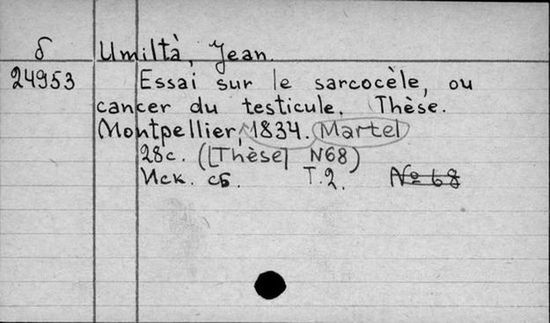 δ Umiltà, Jean.
24953 Essai sur le sarcocèle, ou
cancer du testicule. Thèse.
Montpellier, 1834. Martel
28c. ([Thèse] N68)
Иск. сб. Т.2. № 68